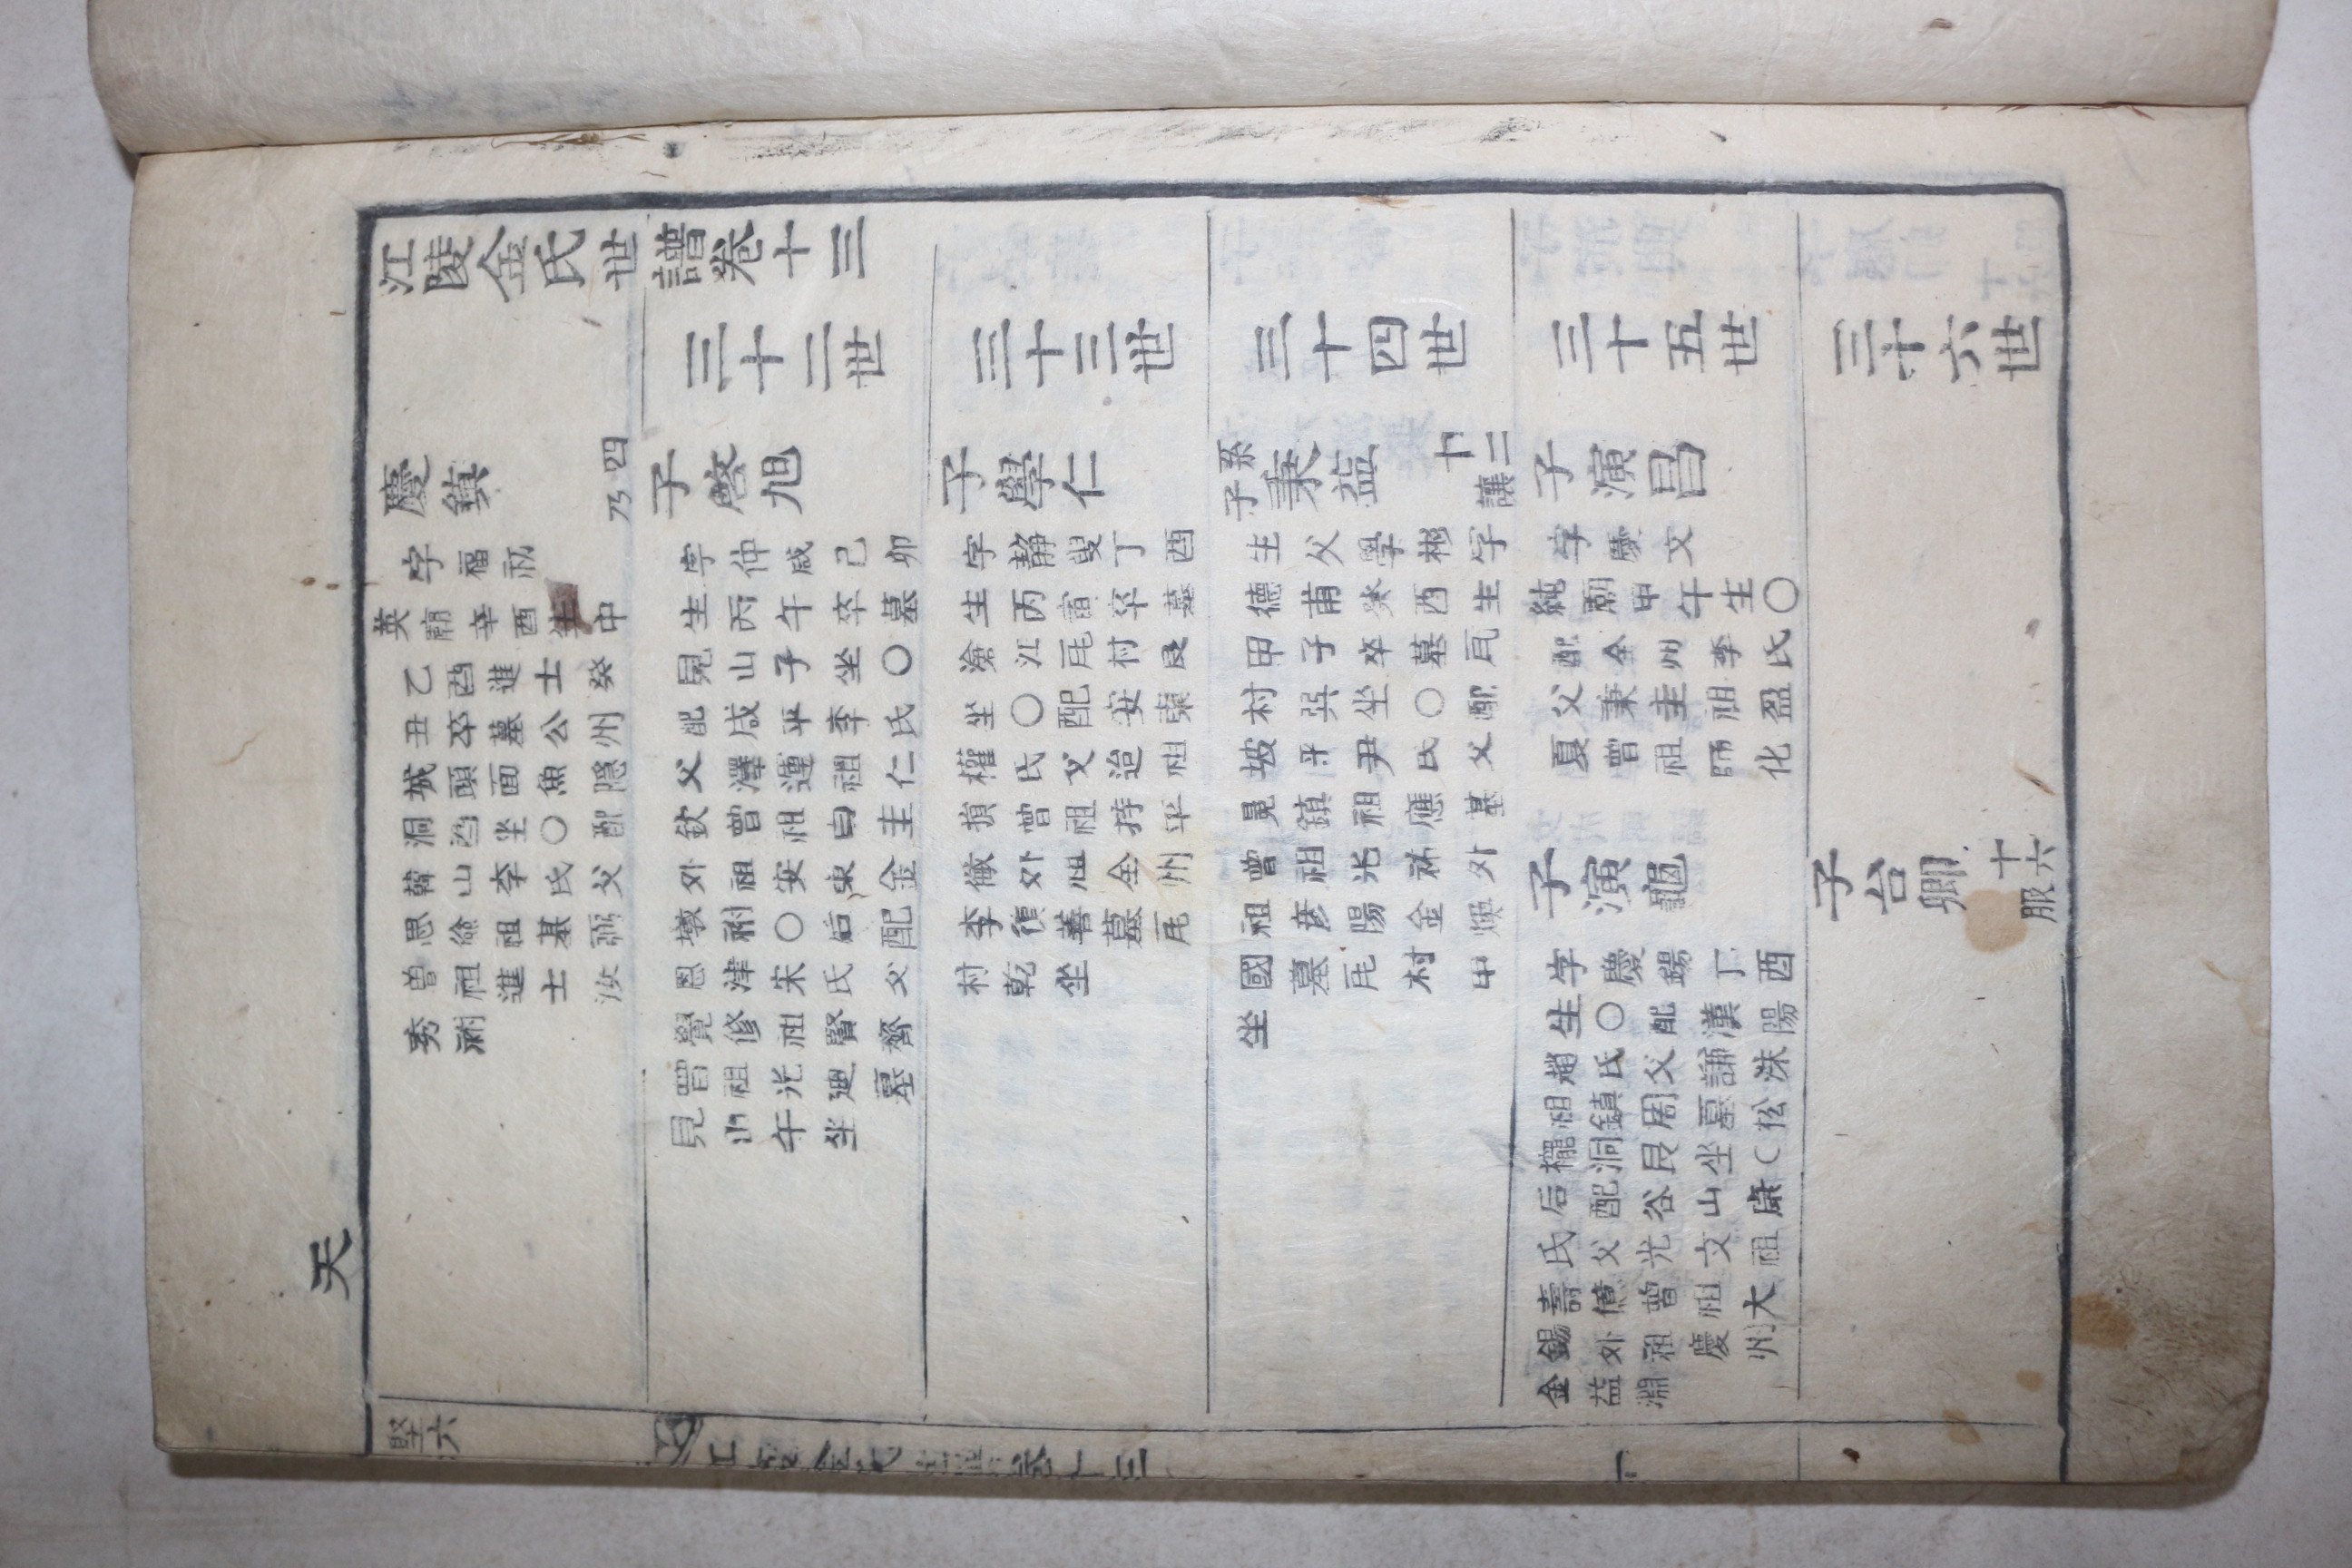 天
江陵金氏世譜卷十三
慶鎮
四
乃
字福初
英廟辛酉生中
乙酉進士癸
丑卒墓公州
城頭面魚隱
洞酉坐○配
韓山李氏父
思儉祖基弼
曾祖進士
秀祔
三十二世
子啓旭
字仲咸己卯
生丙午卒墓
見山子坐○
配咸平李氏
父澤運祖仁
欽曾祖白圭
外祖安東金
墩祔○后配
恩津宋氏父
覺修祖賢齊
曾祖光迪墓
見山午坐
三十三世
子學仁
字靜叟丁酉
生丙寅卒墓
滄江尾村艮
坐○配安東
權氏父迨祖
損曾祖持平
儆外祖全州
李復善墓尾
村乾坐
三十四世
系
子
秉益
十二
讓
生父學彬字
德甫癸酉生
甲子卒墓尾
村巽坐○配
坡平尹氏父
晃鎮祖應基
曾祖光祐外
祖彦陽金煥
國墓尾村甲
坐
三十五世
子演昌
字慶文
純廟甲午生○
配全州李氏
父秉圭祖盈
夏曾祖師化
子演龜
字慶錫丁酉
生○配漢陽
趙氏父謙洙
祖鎮周墓松
櫳洞艮坐○
后配谷山康
氏父光文祖
壽億曾祖大
錫外祖慶州
金益淵
三十六世
子台卿
十六
服
堅六
江陵金氏世譜卷十三